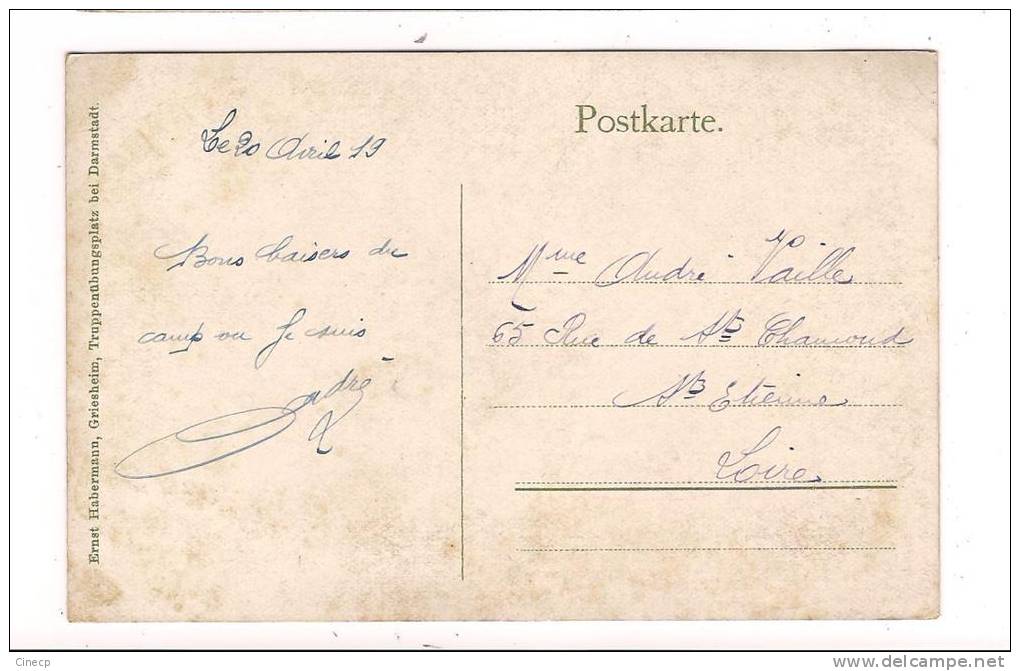 Postkarte.
Le 20 Avril 19
Bons baisers du
camp ou Je suis
André
Mme André Vaille
65 Rue de St Chamond
St Etienne
Loire
Ernst Habermann, Griesheim, Truppenübungsplatz bei Darmstadt.
Cinecp
delcampe.net